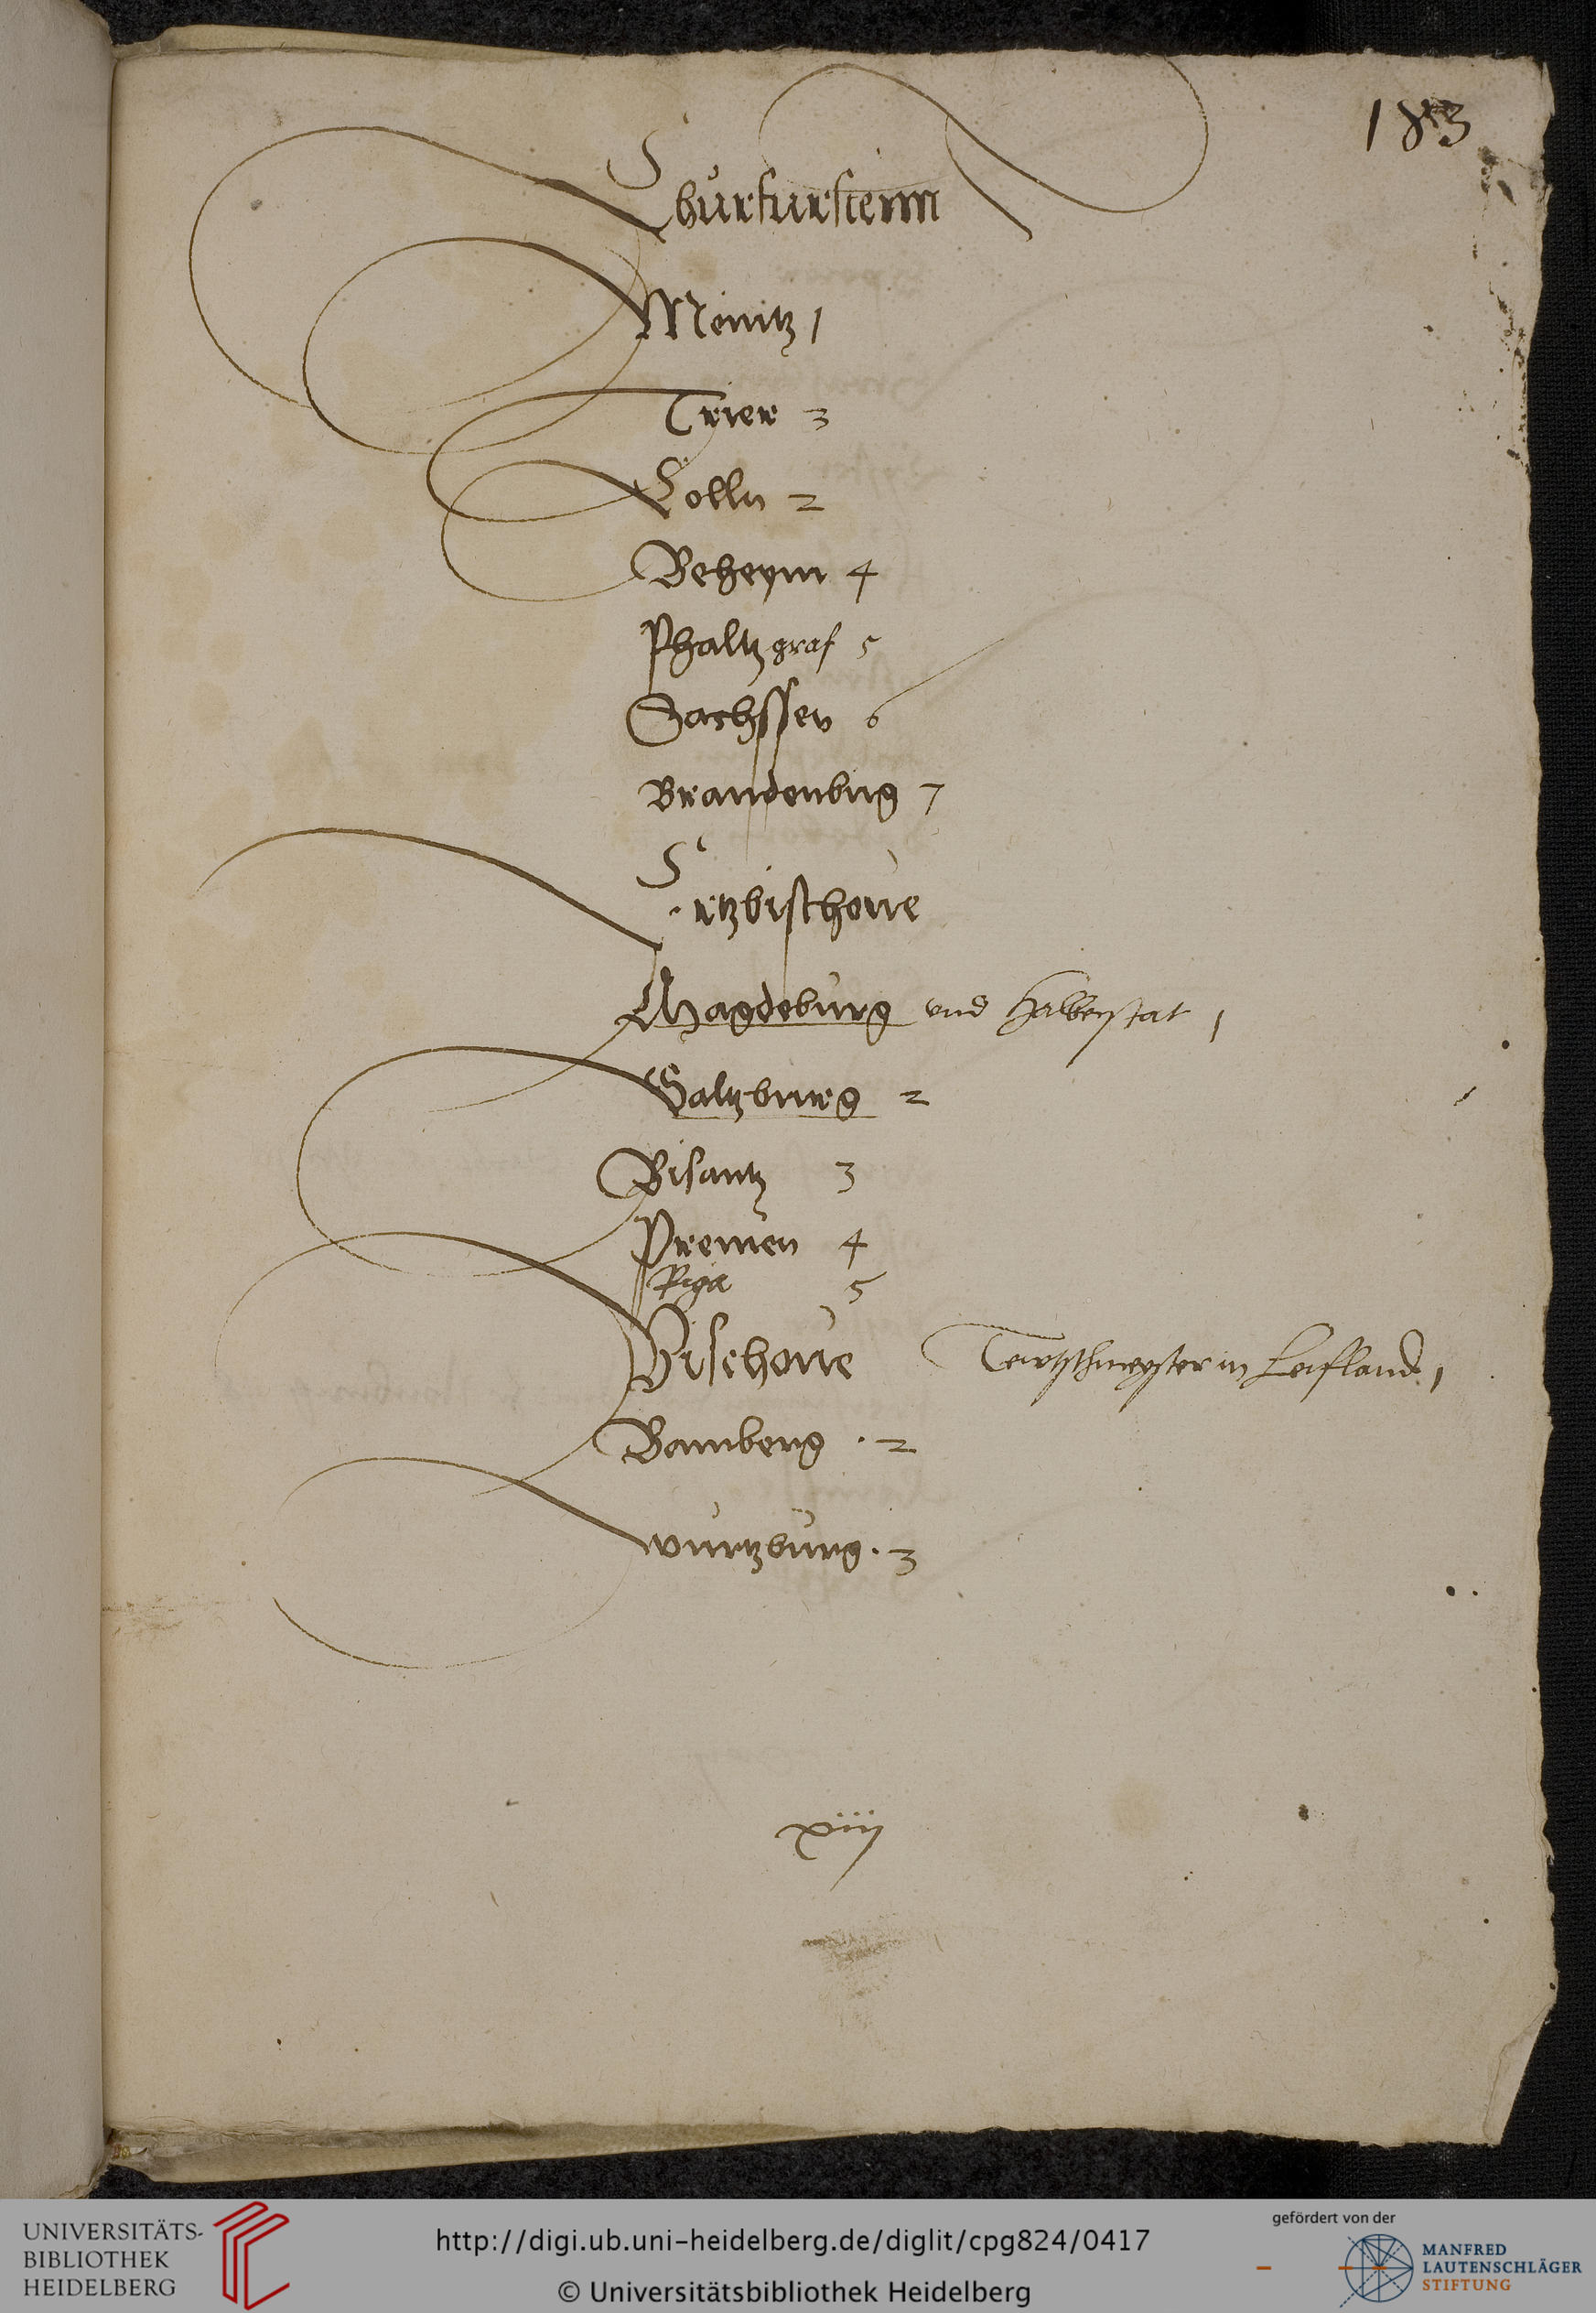 183
Churfurstenn
Menitz 1
Trier 3
Colln 2
Beheym 4
Phaltzgraf 5
Sachssen 6
Brandenburg 7
Ertzbischove
Magdeburg und Halberstat 1
Saltzburg 2
Bisantz 3
Premen 4
Riga 5
Bischove Teutschmeyster in Leifland 1
Bamberg . 2
wurtzburg . 3
xiij
UNIVERSITÄTS-
BIBLIOTHEK
HEIDELBERG
http://digi.ub.uni-heidelberg.de/diglit/cpg824/0417
© Universitätsbibliothek Heidelberg
gefördert von der
MANFRED
LAUTENSCHLÄGER
STIFTUNG